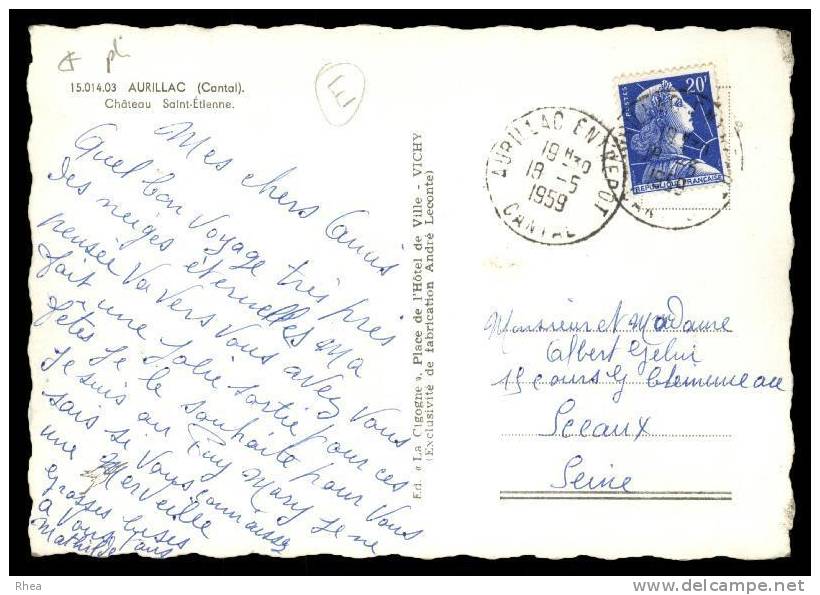 pli
15.014.03 AURILLAC (Cantal).
Château Saint-Étienne.
Mes chers Amis
Quel bon Voyage très près
des neiges éternelles Ma
pensée Va Vers Vous avez Vous
fait une Jolie Sortie pour ces
fêtes Je le souhaite pour Vous
Je suis au Puy Mary Je ne
sais si Vous connaissez
une Merveille
grosses bises
à Vous tous
Mathilde
Ed. « La Cigogne », Place de l'Hôtel de Ville - VICHY
(Exclusivité de fabrication André Leconte)
AURILLAC ENTREPOT
19 H30
19 -5
1959
CANTAL
20F
POSTES
REPUBLIQUE FRANÇAISE
Monsieur et Madame
Albert
15 cours
Sceaux
Seine
Rhea
www.delcampe.net